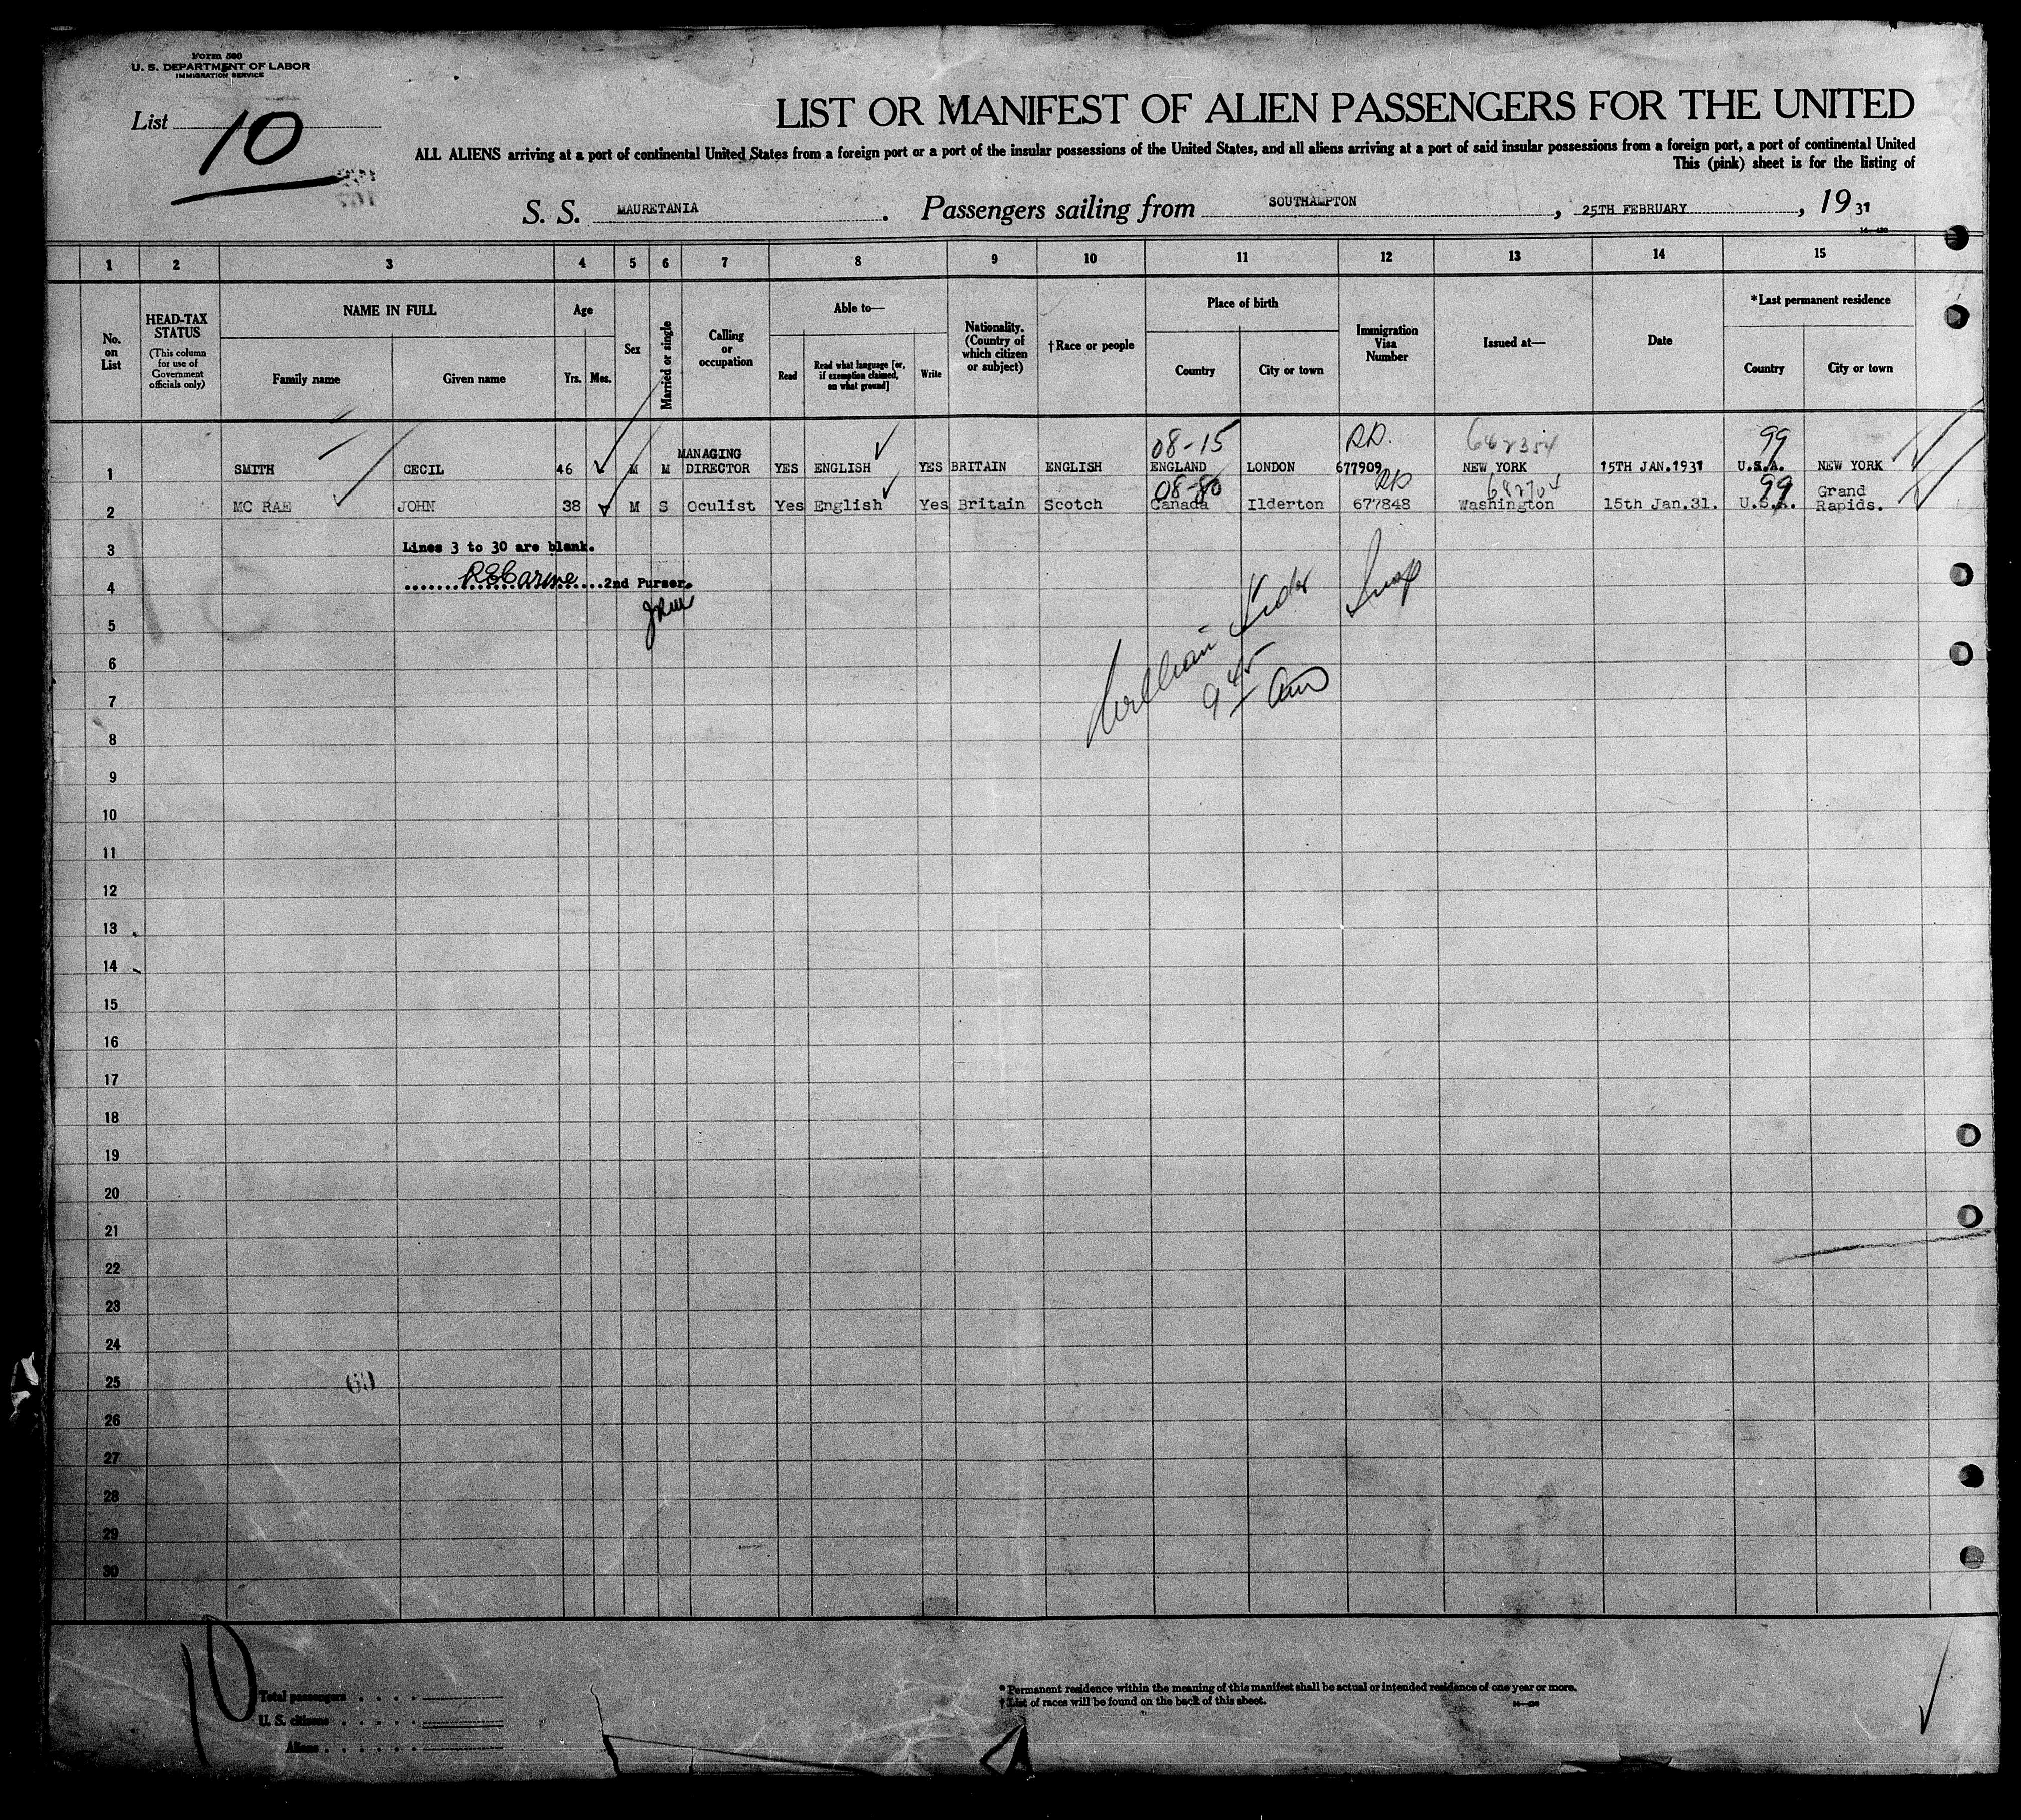 Form 500
U. S. DEPARTMENT OF LABOR
IMMIGRATION SERVICE
List 10
LIST OR MANIFEST OF ALIEN PASSENGERS FOR THE UNITED
ALL ALIENS arriving at a port of continental United States from a foreign port or a port of the insular possessions of the United States, and all aliens arriving at a port of said insular possessions from a foreign port, a port of continental United
This (pink) sheet is for the listing of
S. S. MAURETANIA. Passengers sailing from SOUTHAMPTON, 25TH FEBRUARY, 1931
1 2 3 4 5 6 7 8 9 10 11 12 13 14 15
No. on List
HEAD-TAX STATUS (This column for use of Government officials only)
NAME IN FULL
Family name Given name
Age
Yrs. Mos.
Sex
Married or single
Calling or occupation
Able to—
Read Read what language [or, if exemption claimed, on what ground] Write
Nationality. (Country of which citizen or subject)
†Race or people
Place of birth
Country City or town
Immigration Visa Number
Issued at—
Date
*Last permanent residence
Country City or town
08-15 RD. 642354 99
1 SMITH CECIL 46 M M MANAGING DIRECTOR YES ENGLISH YES BRITAIN ENGLISH ENGLAND LONDON 677909 NEW YORK 15TH JAN.1931 U.S.A. NEW YORK
08-80 RD 642704 99
2 MC RAE JOHN 38 M S Oculist Yes English Yes Britain Scotch Canada Ilderton 677848 Washington 15th Jan.31. U.S.A. Grand Rapids.
3 Lines 3 to 30 are blank.
4 2nd Purser.
5
6
7
8
9
10
11
12
13
14
15
16
17
18
19
20
21
22
23
24
25 60
26
27
28
29
30
10
Total passengers
U. S. citizens
Aliens
* Permanent residence within the meaning of this manifest shall be actual or intended residence of one year or more.
† List of races will be found on the back of this sheet.